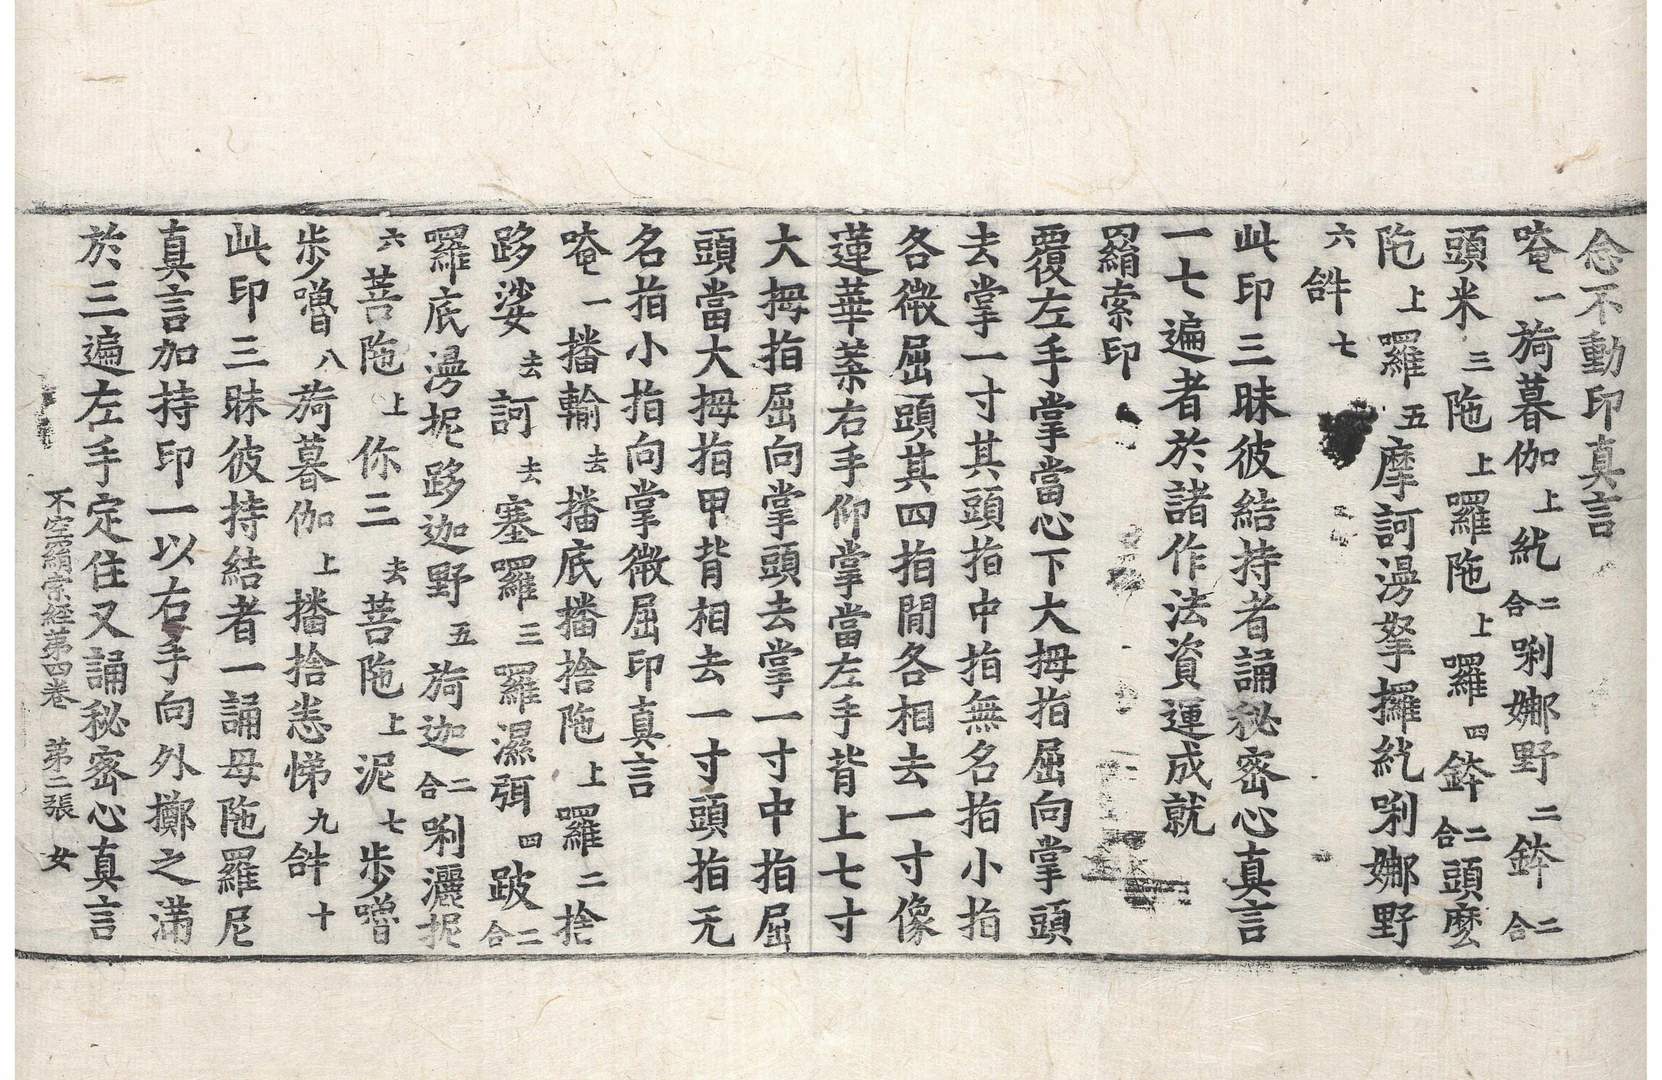 念不動印真言
唵一旖暮伽上紇二合唎娜野二鉢二合
頭米三陁上羅陁上囉四鉢二合頭麽
陁上囉五摩訶湯拏攞紇唎娜野
六𤙖七
此印三昧彼結持者誦秘密心真言
一七遍者於諸作法資運成就
羂索印
覆左手掌當心下大拇指屈向掌頭
去掌一寸其頭指中指無名指小指
各微屈頭其四指間各相去一寸像
蓮華葉右手仰掌當左手背上七寸
大拇指屈向掌頭去掌一寸中指屈
頭當大拇指甲背相去一寸頭指无
名指小指向掌微屈印真言
唵一播輸去播底播捨陁上羅二捨
跢娑去訶去塞囉三囉濕弭四跛二合
羅底湯抳跢迦野五旖迦二合唎灑抳
六菩陁上你三去菩陁上泥七步噜
步噜八旖暮伽上播捨悉悌九𤙖十
此印三昧彼持結者一誦母陁羅尼
真言加持印一以右手向外擲之滿
於三遍左手定住又誦秘密心真言
不空絹索経第四卷 第二張 女